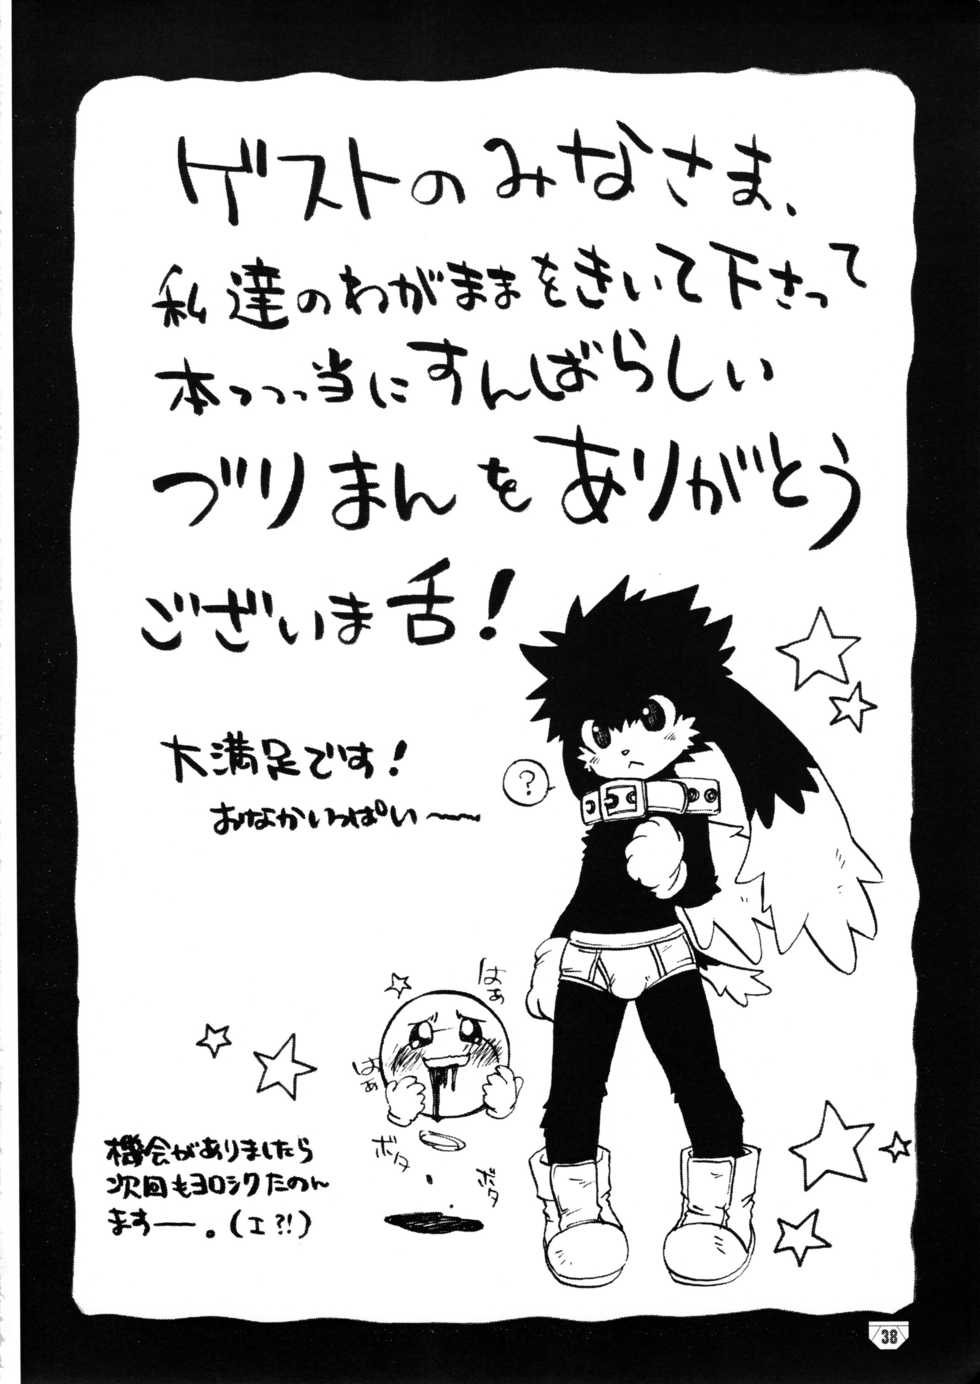 ゲストのみなさま、
私達のわがままをきいて下さって
本っっっ当にすんばらしい
づりまんをありがとう
ございま舌!
大満足です!
おなかいっぱい〜〜
?
はぁ
はぁ
ボタ
ボタ
機会がありましたら
次回もヨロシクたのん
ますー。(エ?!)
38